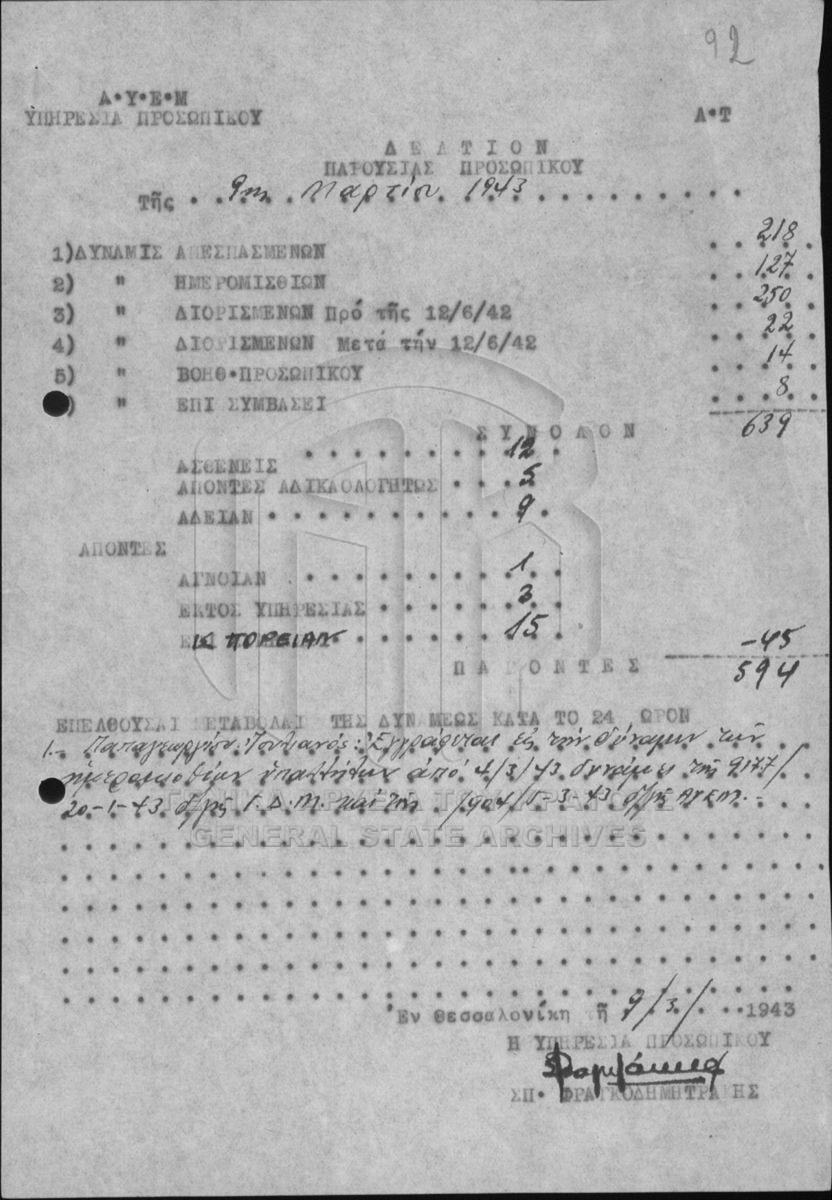 92
Α.Υ.Ε.Μ
ΥΠΗΡΕΣΙΑ ΠΡΟΣΩΠΙΚΟΥ Α.Τ
ΔΕΛΤΙΟΝ
ΠΑΡΟΥΣΙΑΣ ΠΡΟΣΩΠΙΚΟΥ
Τῆς 9ης Μαρτίου 1943
1)ΔΥΝΑΜΙΣ ΑΠΕΣΠΑΣΜΕΝΩΝ 218
2) " ΗΜΕΡΟΜΙΣΘΙΩΝ 127
3) " ΔΙΟΡΙΣΜΕΝΩΝ Πρό τῆς 12/6/42 250
4) " ΔΙΟΡΙΣΜΕΝΩΝ Μετά τήν 12/6/42 22
5) " ΒΟΗΘ.ΠΡΟΣΩΠΙΚΟΥ 14
) " ΕΠΙ ΣΥΜΒΑΣΕΙ 8
ΣΥΝΟΛΟΝ 639
ΑΣΘΕΝΕΙΣ 12
ΑΠΟΝΤΕΣ ΑΔΙΚΑΟΛΟΓΗΤΩΣ 5
ΑΔΕΙΑΝ 9
ΑΠΟΝΤΕΣ
ΑΓΝΟΙΑΝ 1
ΕΚΤΟΣ ΥΠΗΡΕΣΙΑΣ 3
ΠΟΡΕΙΑΝ 15
-45
ΠΑΡΟΝΤΕΣ 594
ΕΠΕΛΘΟΥΣΑΙ ΜΕΤΑΒΟΛΑΙ ΤΗΣ ΔΥΝΑΜΕΩΣ ΚΑΤΑ ΤΟ 24 ΩΡΟΝ
1.- Παπαγεωργίου Ἐγγράφεται εἰς τήν δύναμιν τῶν
ἡμερομισθίων ἀπό 4/3/43 δυνάμει τῆς 9177/
20-1-43 δ/γῆς Γ.Δ.Μ. καί τῆς 1904/5-3-43 δ/γῆς ΑΥΕΜ.-
ΓΕΝΙΚΑ ΑΡΧΕΙΑ ΤΟΥ ΚΡΑΤΟΥΣ
GENERAL STATE ARCHIVES
Ἐν Θεσσαλονίκῃ τῇ 9/3/ 1943
Η ΥΠΗΡΕΣΙΑ ΠΡΟΣΩΠΙΚΟΥ
ΣΠ. ΦΡΑΓΚΟΔΗΜΗΤΡΑΚΗΣ